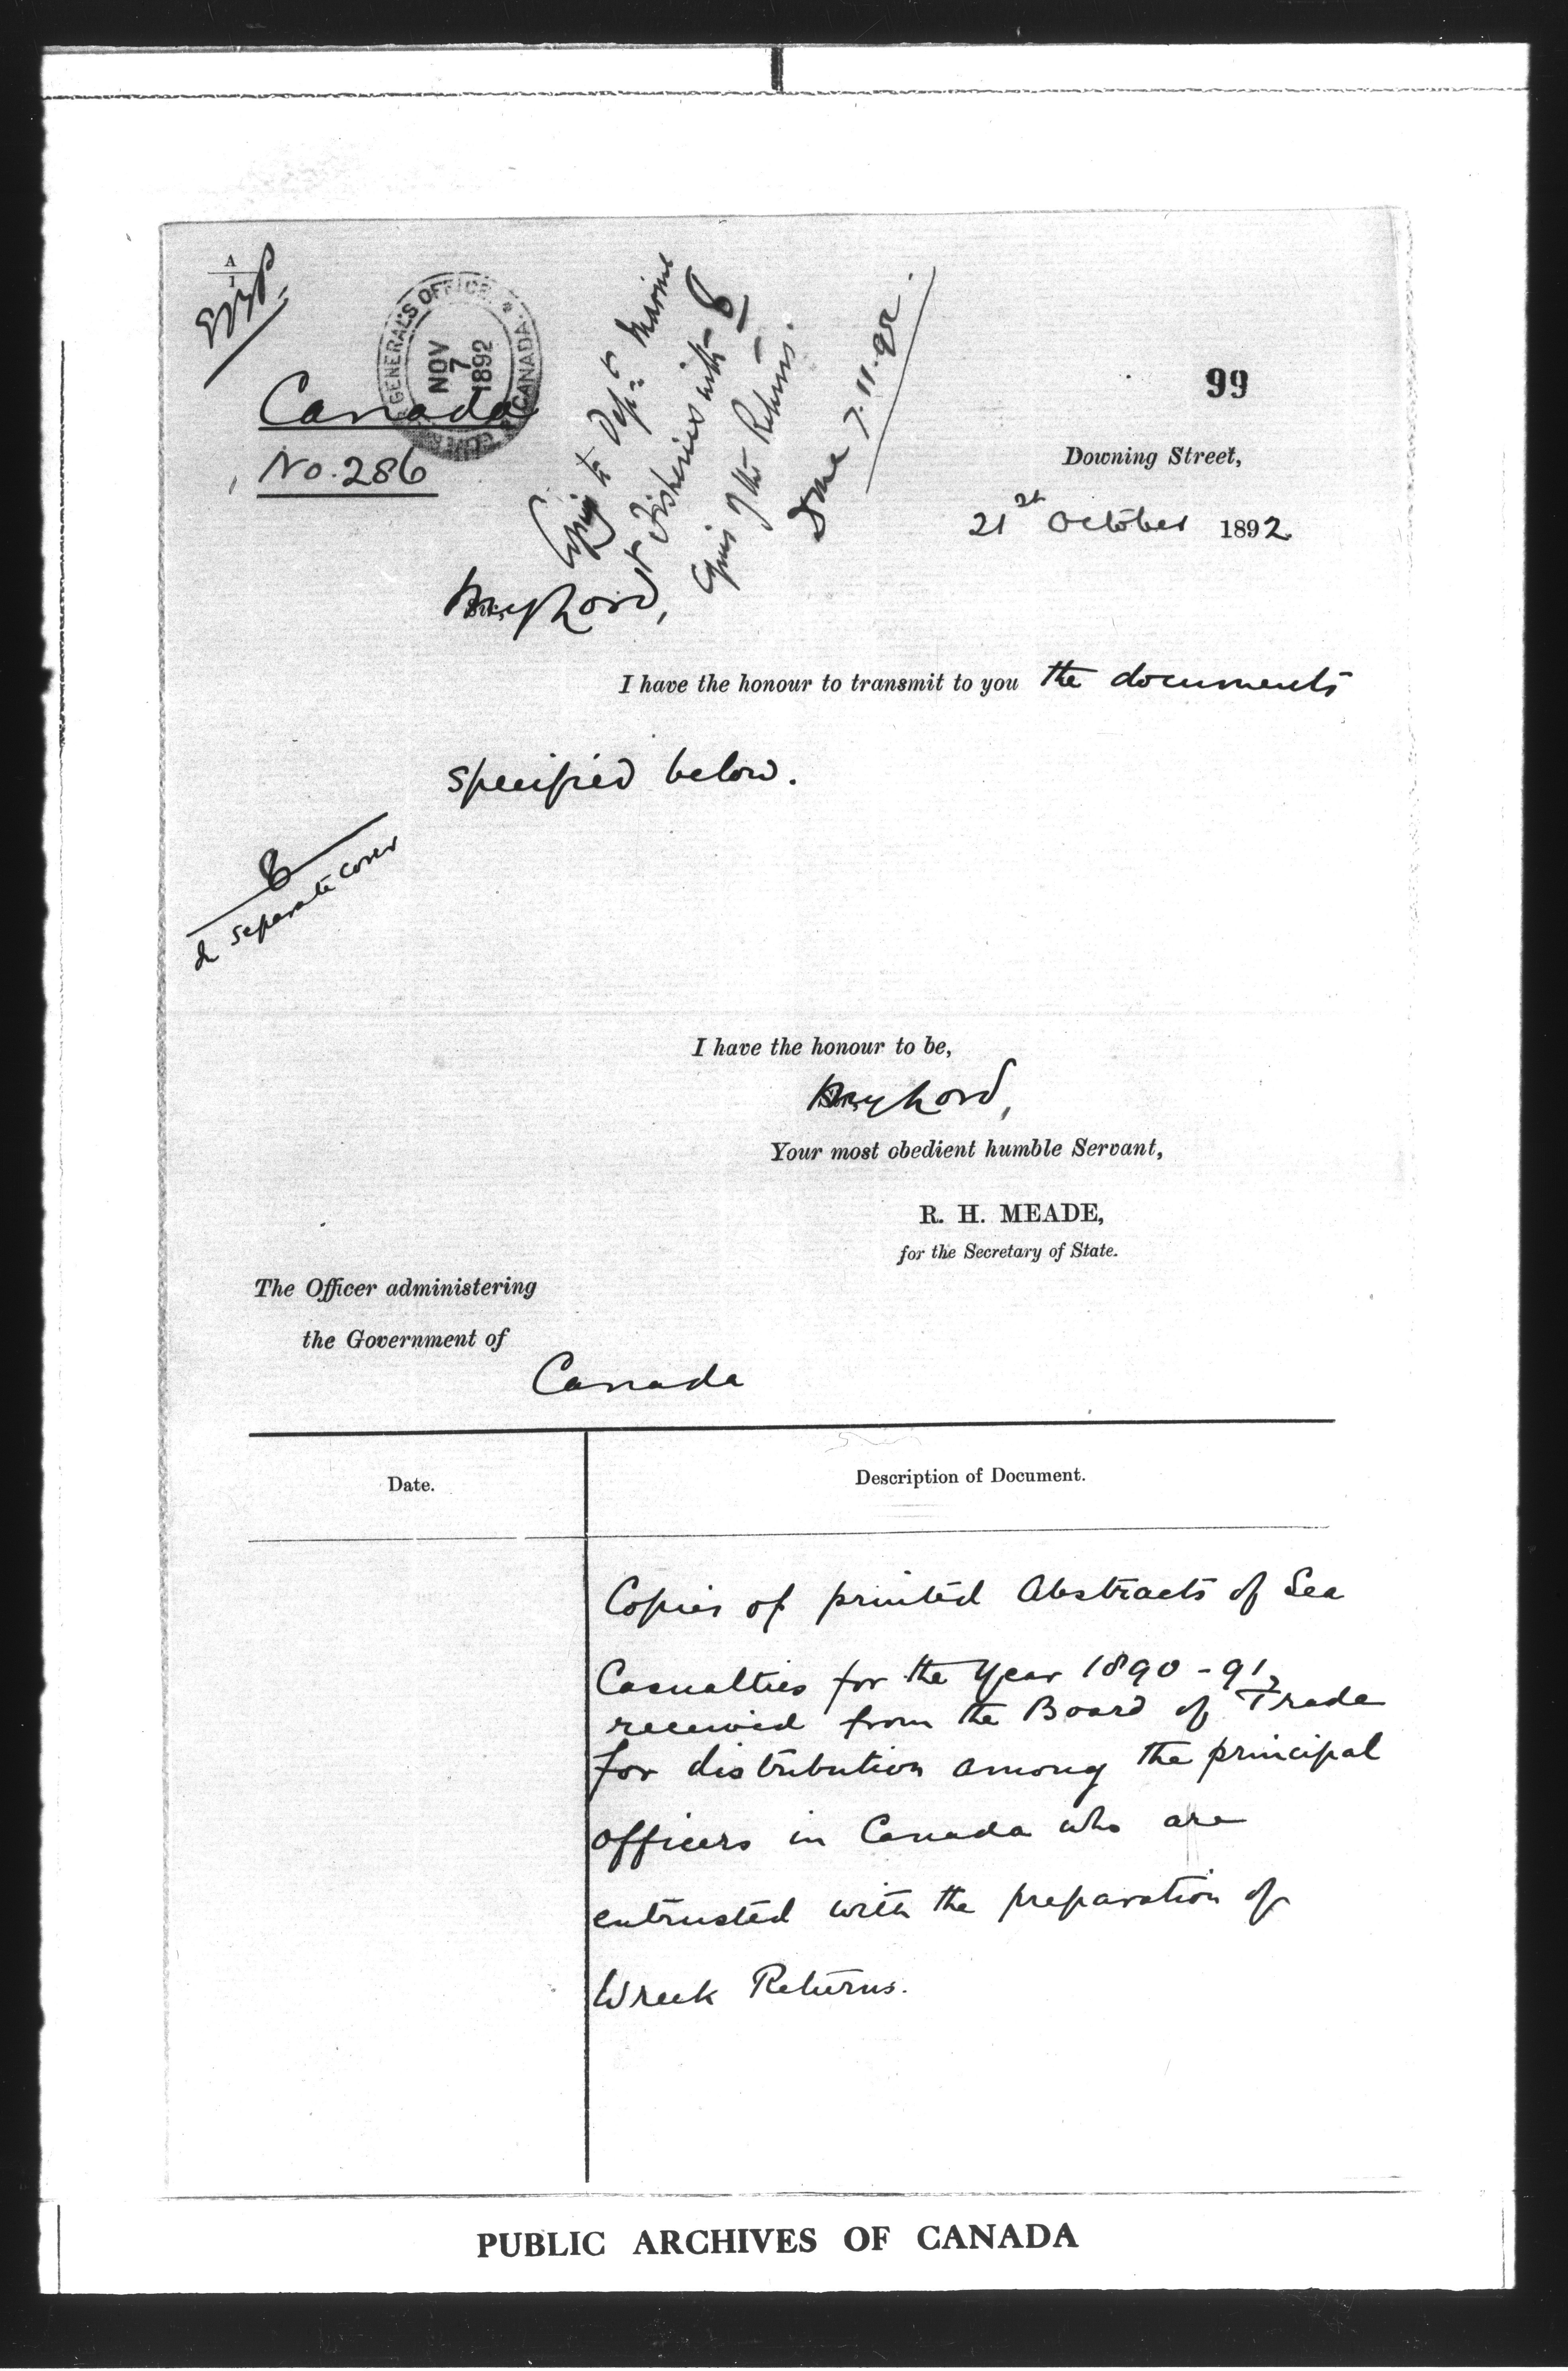 A
1
GOVERNOR GENERAL'S OFFICE * CANADA.
NOV
7
1892
Canada
No. 286
Copy to Dept. Marine
& Fisheries with 8
Copies of the Returns.
Done 7.11.92.
99
Downing Street,
21st October 1892
My Lord,
I have the honour to transmit to you the documents
specified below.
8
In separate cover
I have the honour to be,
My Lord,
Your most obedient humble Servant,
R. H. MEADE,
for the Secretary of State.
The Officer administering
the Government of
Canada
Date.
Description of Document.
Copies of printed Abstracts of Sea
Casualties for the Year 1890-91,
received from the Board of Trade
for distribution among the principal
officers in Canada who are
entrusted with the preparation of
Wreck Returns.
PUBLIC ARCHIVES OF CANADA